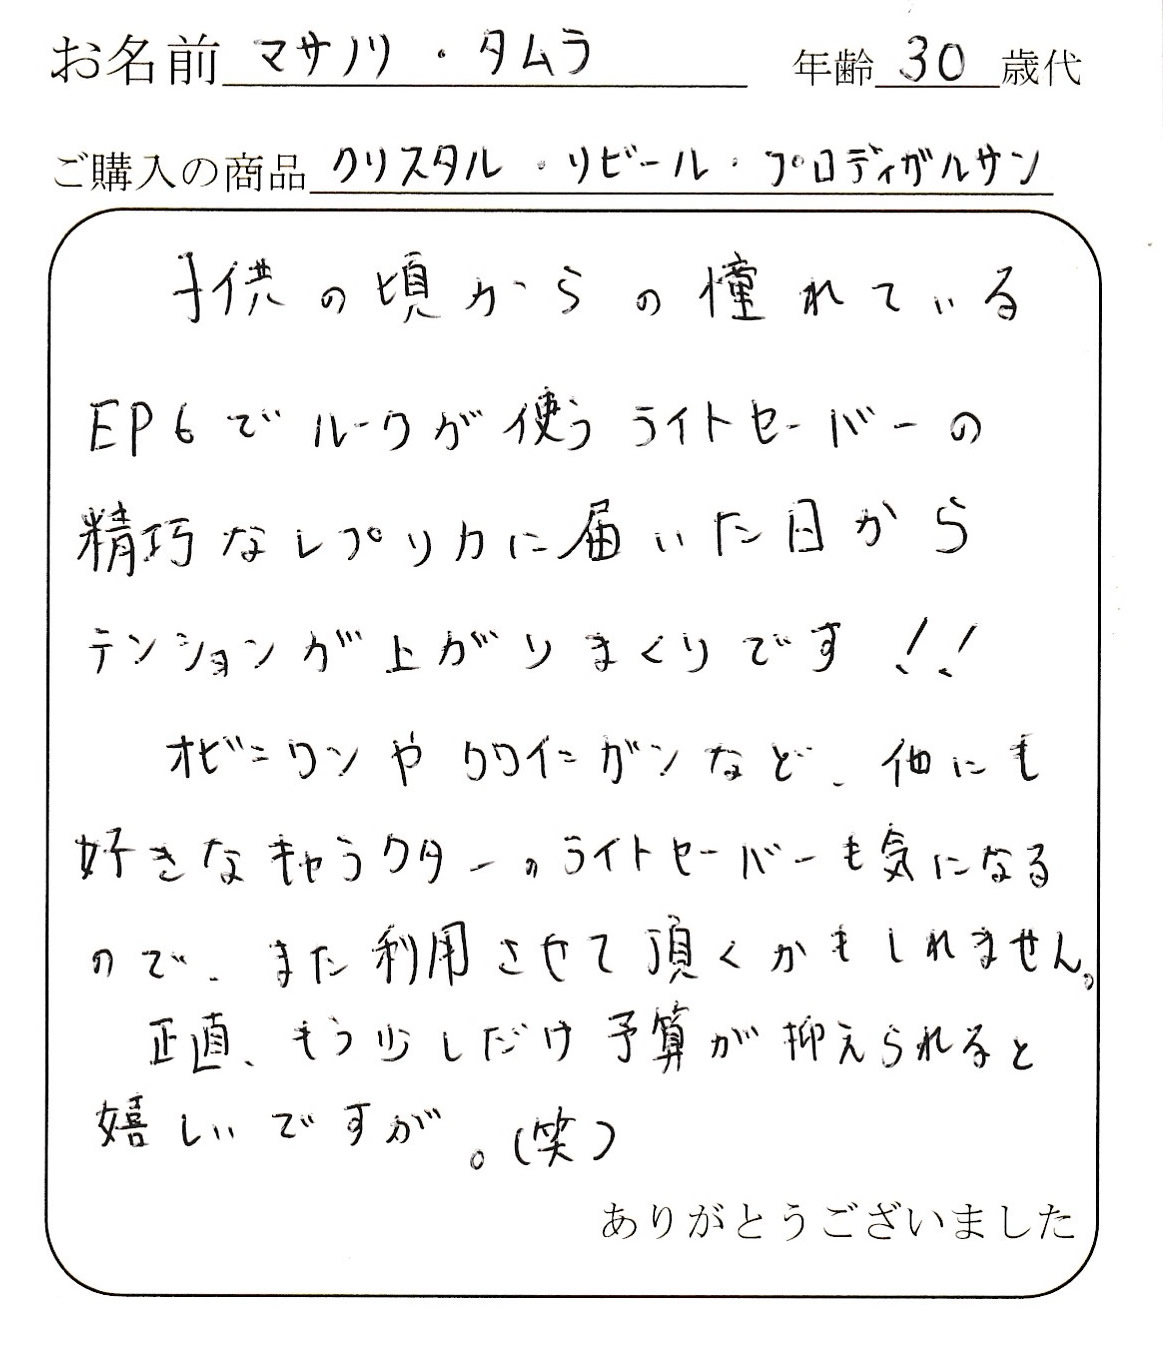 お名前 マサノリ・タムラ 年齢 30 歳代
ご購入の商品 クリスタル・リビール・プロディガルサン
子供の頃からの憧れている
EP6でルークが使うライトセーバーの
精巧なレプリカに届いた日から
テンションが上がりまくりです!!
オビ=ワンやクワイ=ガンなど、他にも
好きなキャラクターのライトセーバーも気になる
ので、また利用させて頂くかもしれません。
正直、もう少しだけ予算が抑えられると
嬉しいですが。(笑)
ありがとうございました